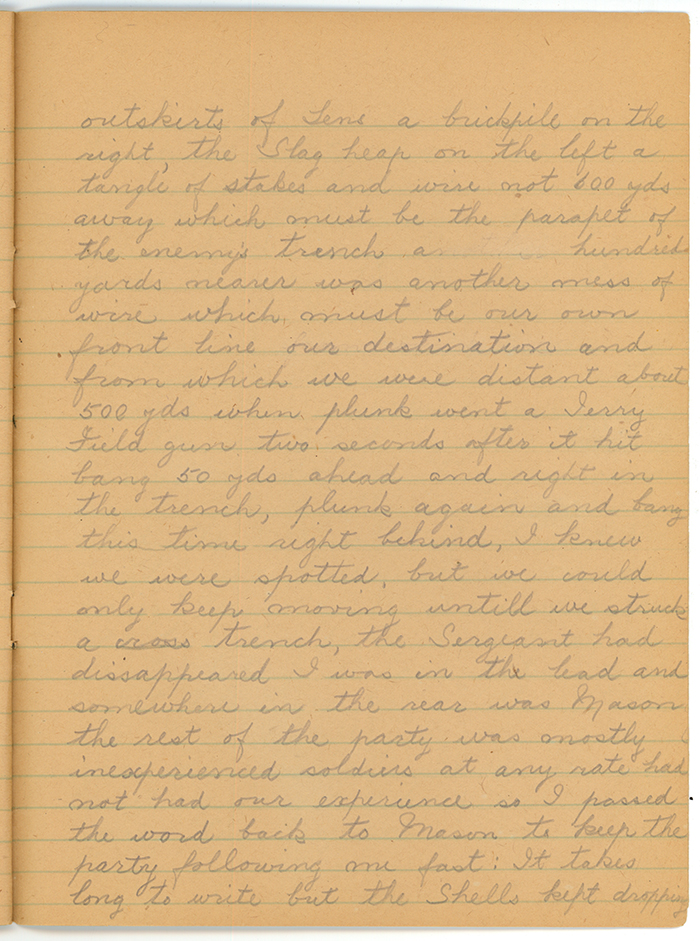 outskirts of Lens a brickpile on the
right, the Slag heap on the left a
tangle of stakes and wire not 600 yds
away which must be the parapet of
the enemy's trench a hundred
yards nearer was another mess of
wire which must be our own
front line our destination and
from which we were distant about
500 yds when plunk went a Jerry
Field gun two seconds after it hit
bang 50 yds ahead and right in
the trench, plunk again and bang
this time right behind, I knew
we were spotted, but we could
only keep moving untill we struck
a cross trench, the Sergeant had
dissappeared I was in the lead and
somewhere in the rear was Mason
the rest of the party was mostly
inexperienced soldiers at any rate had
not had our experience so I passed
the word back to Mason to keep the
party following me fast: It takes
long to write but the Shells kept dropping